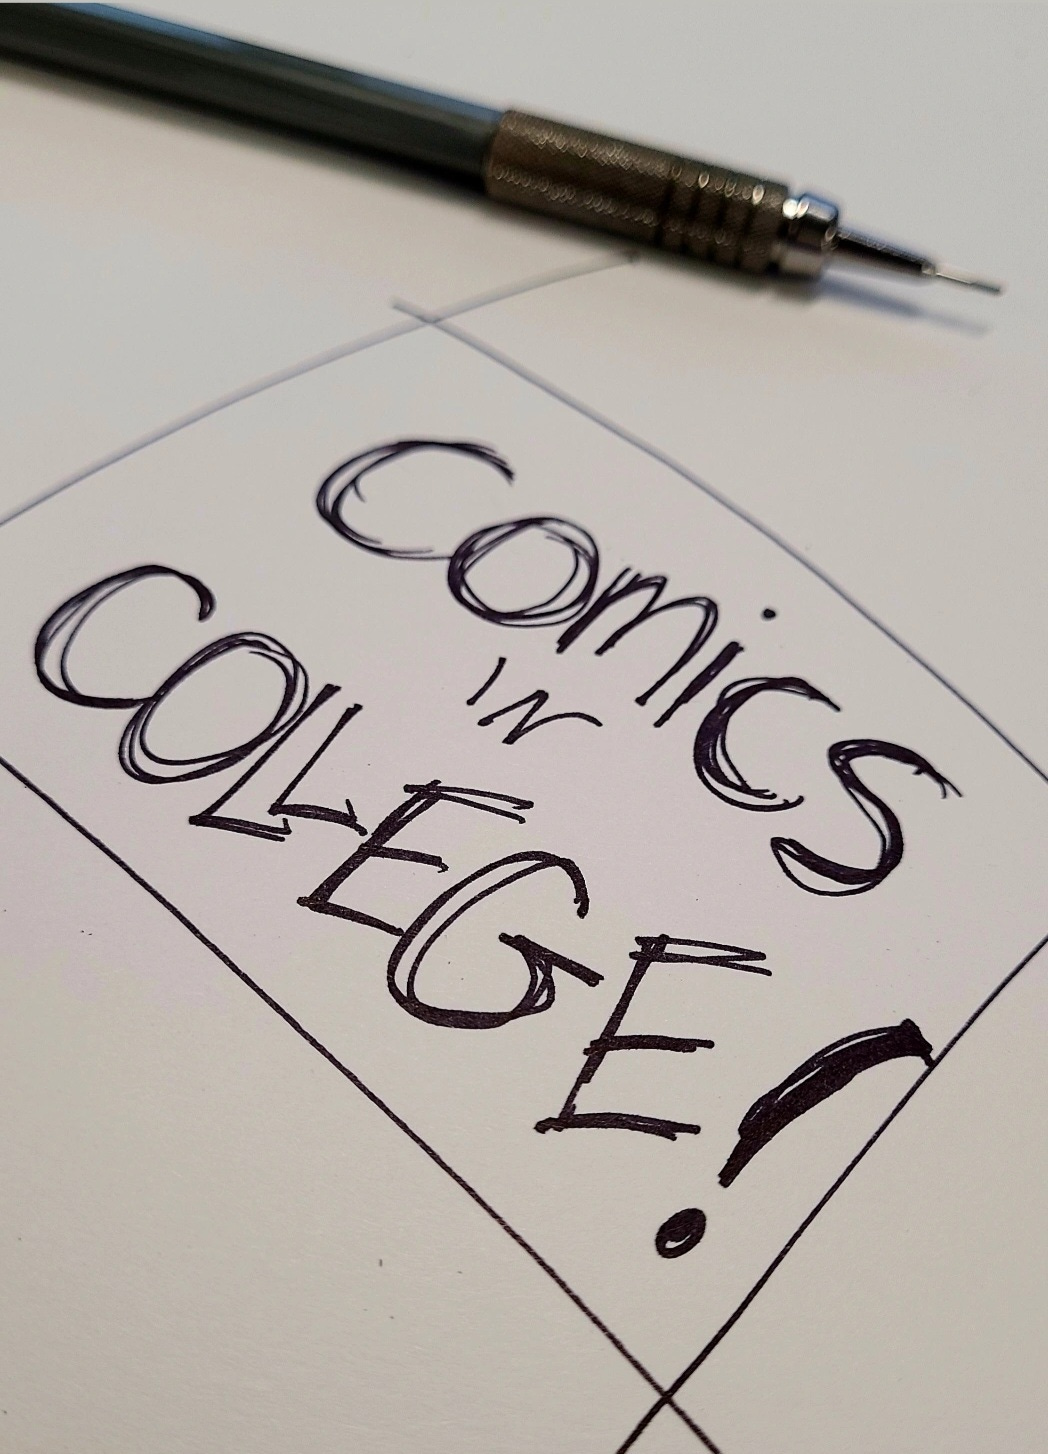 COMiCS
iN
COLLEGE!